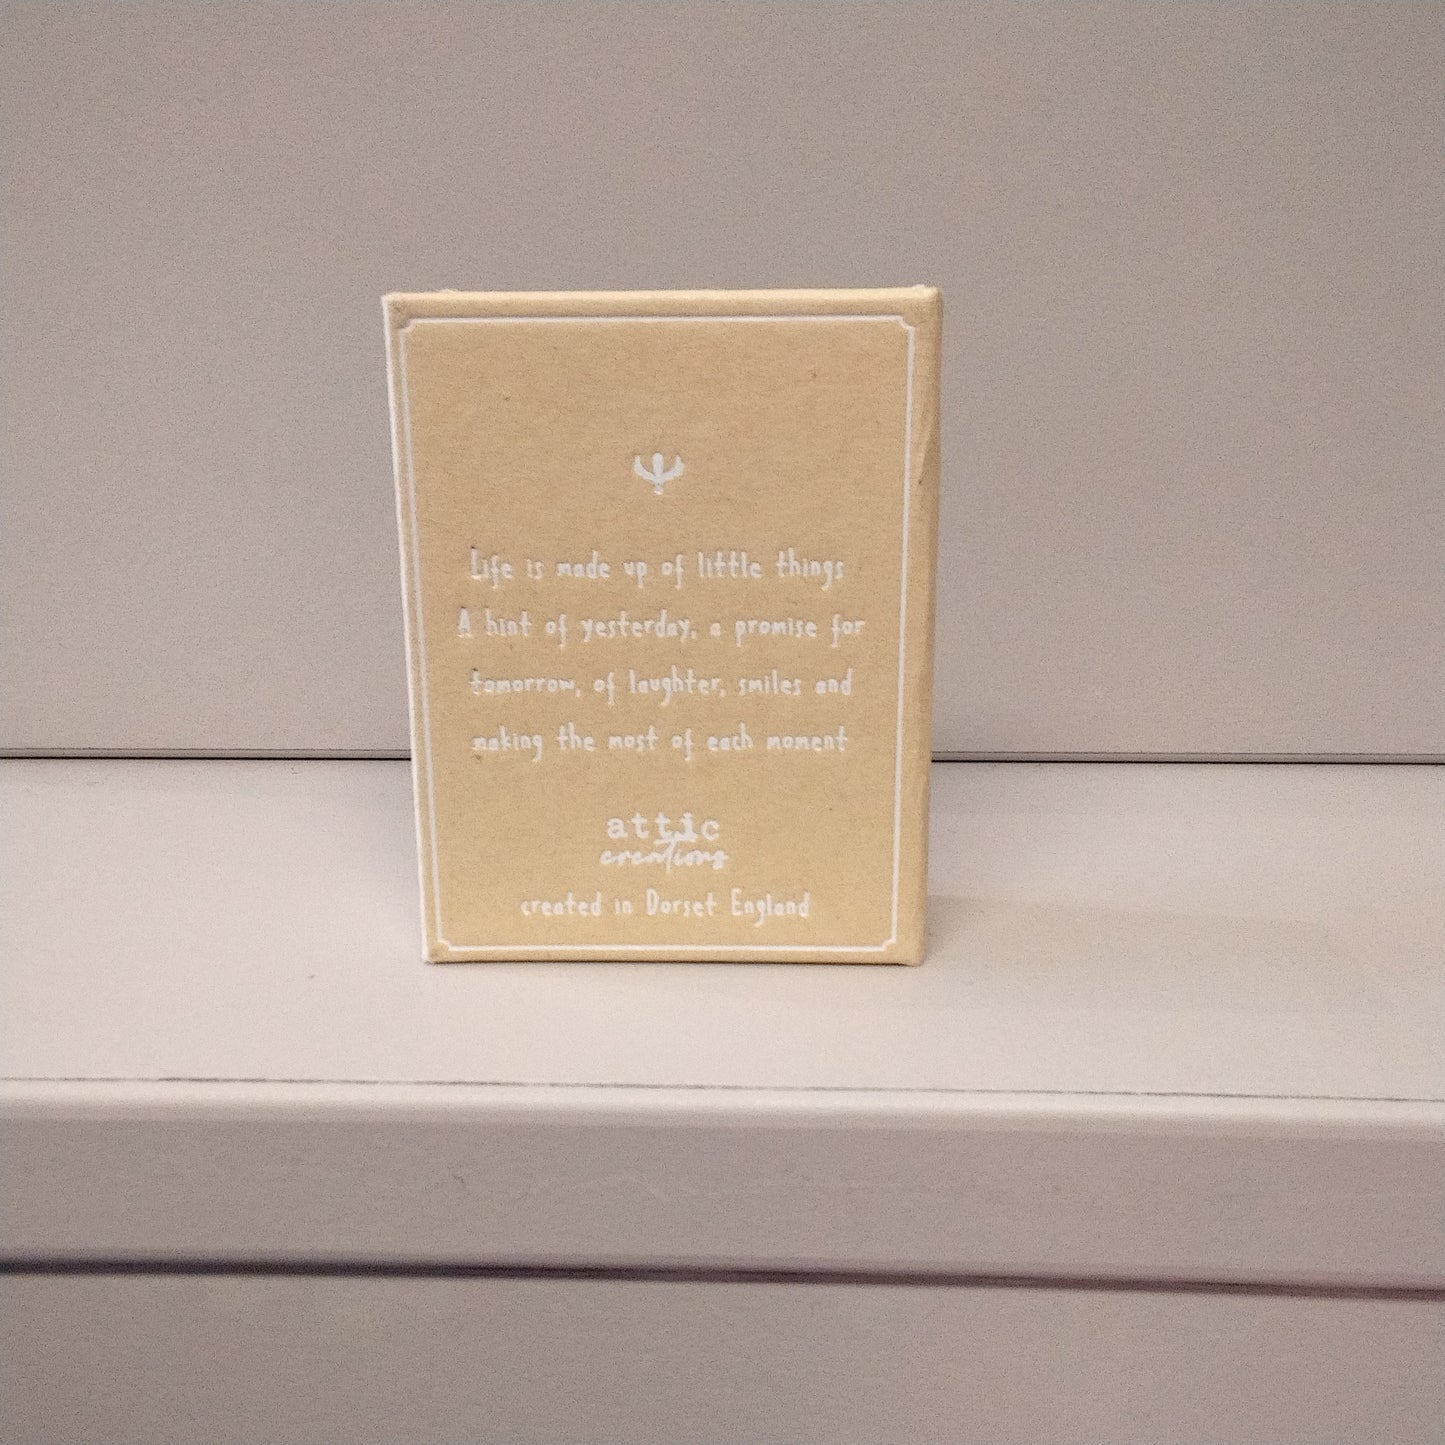 Life is made up of little things
A hint of yesterday, a promise for
tomorrow, of laughter, smiles and
making the most of each moment
attic
creations
created in Dorset England